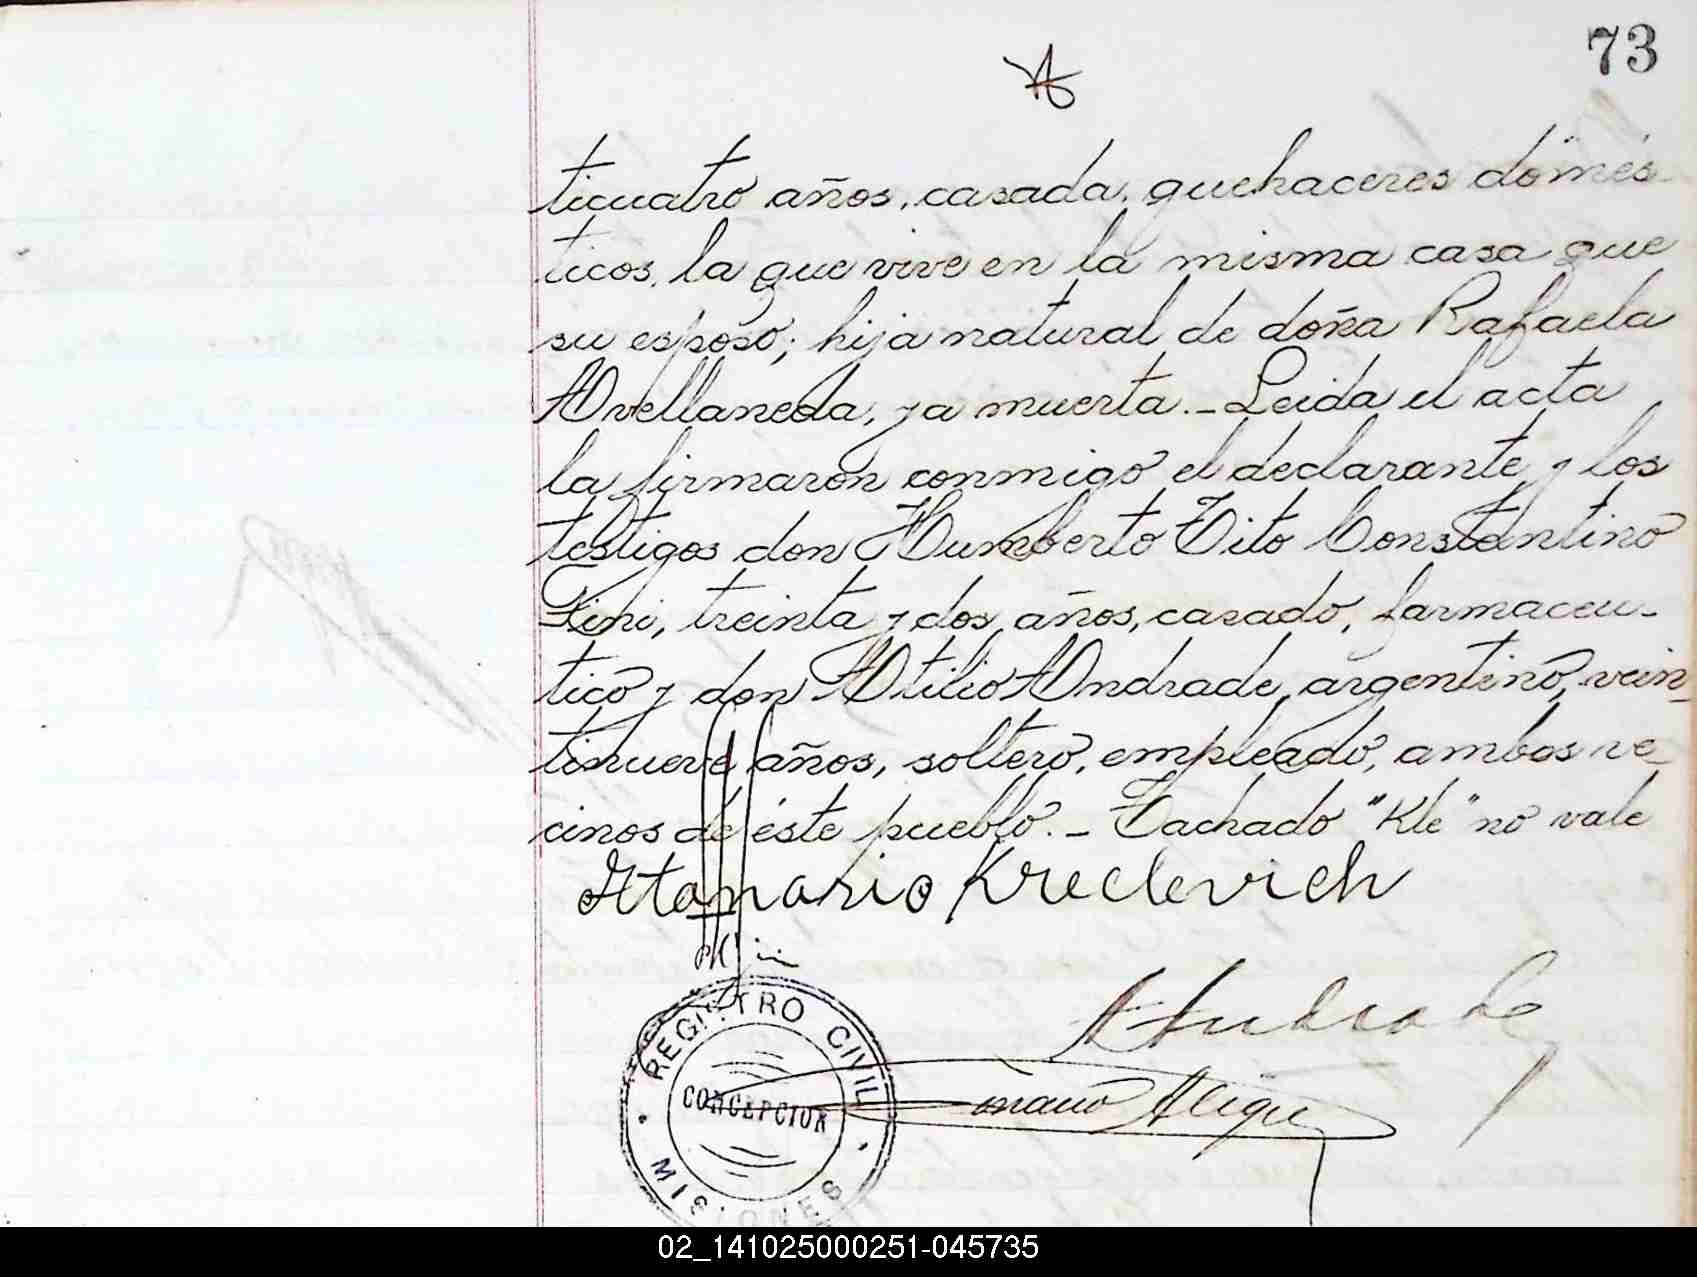 73
ticuatro años, casada, quehaceres domés-
ticos, la que vive en la misma casa que
su esposo; hija natural de doña Rafaela
Avellaneda, ya muerta.- Leida el acta
la firmaron conmigo el declarante y los
testigos don Humberto Tito Constantino
Fini, treinta y dos años, casado, farmaceu-
tico y don Atilio Andrade, argentino, vein-
tinueve años, soltero, empleado, ambos ve-
cinos de éste pueblo.- Tachado "Kle" no vale
Atanario Kreclevich
AAndrade
REGISTRO CIVIL
CONCEPCION
MISIONES
02_141025000251-045735